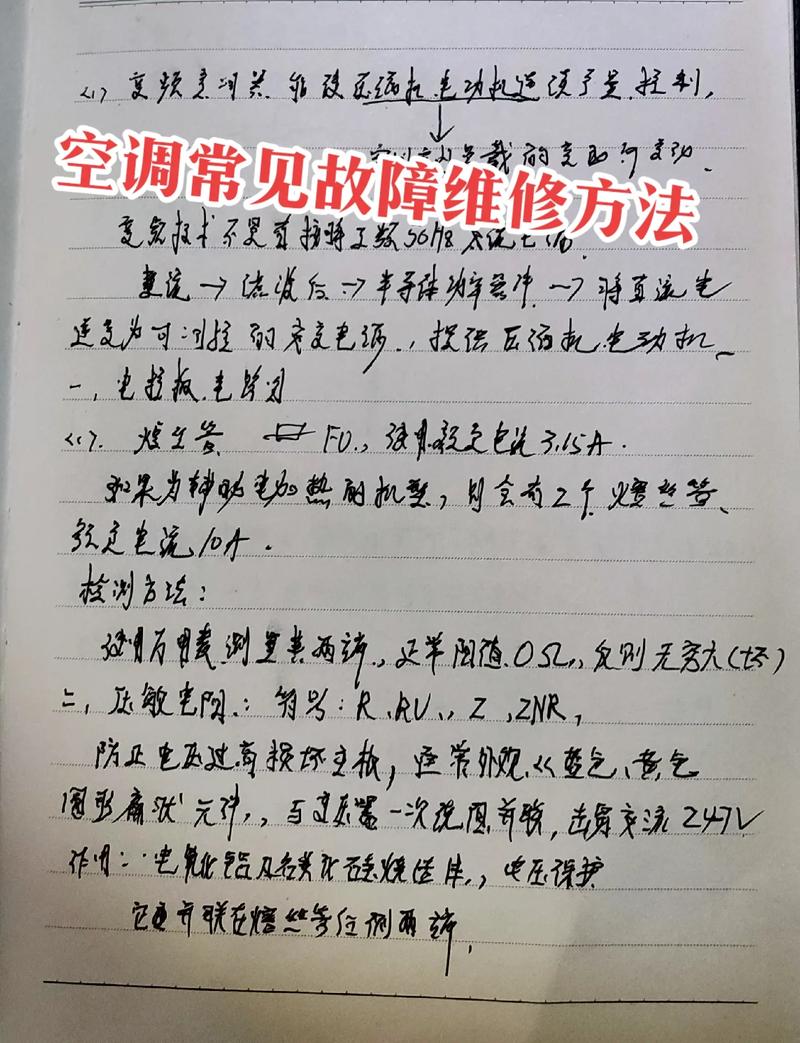 <1> 变频空调关 能使压缩机电动机 速度 控制,
载的变动而变动.
空调常见故障维修方法
变 技术不是直接将工频50Hz
整流→滤波后→半导体功率器件→将直流电
逆变为可调控的交变电源., 提供压缩机电动机
一. 电控板电路
<1>. 熔丝管 FU., 使用额定电流3.15A.
如果为辅助电加热的机型, 则会有2个 熔丝管、
额定电流10A.
检测方法:
使用万用表测量其两端., 正常阻值0Ω., 否则无穷大(坏)
二. 压敏电阻.: 符号: R、RU., Z, ZNR,
防止电压过高损坏主板, 通常外观<<蓝色、黄色
圆形扁状 元件,, 与变压器一次绕阻并联, 击穿交流247V
作用:: 电 氧化 及 烧 体., 电压保护
它 并联在熔丝 后侧两端,